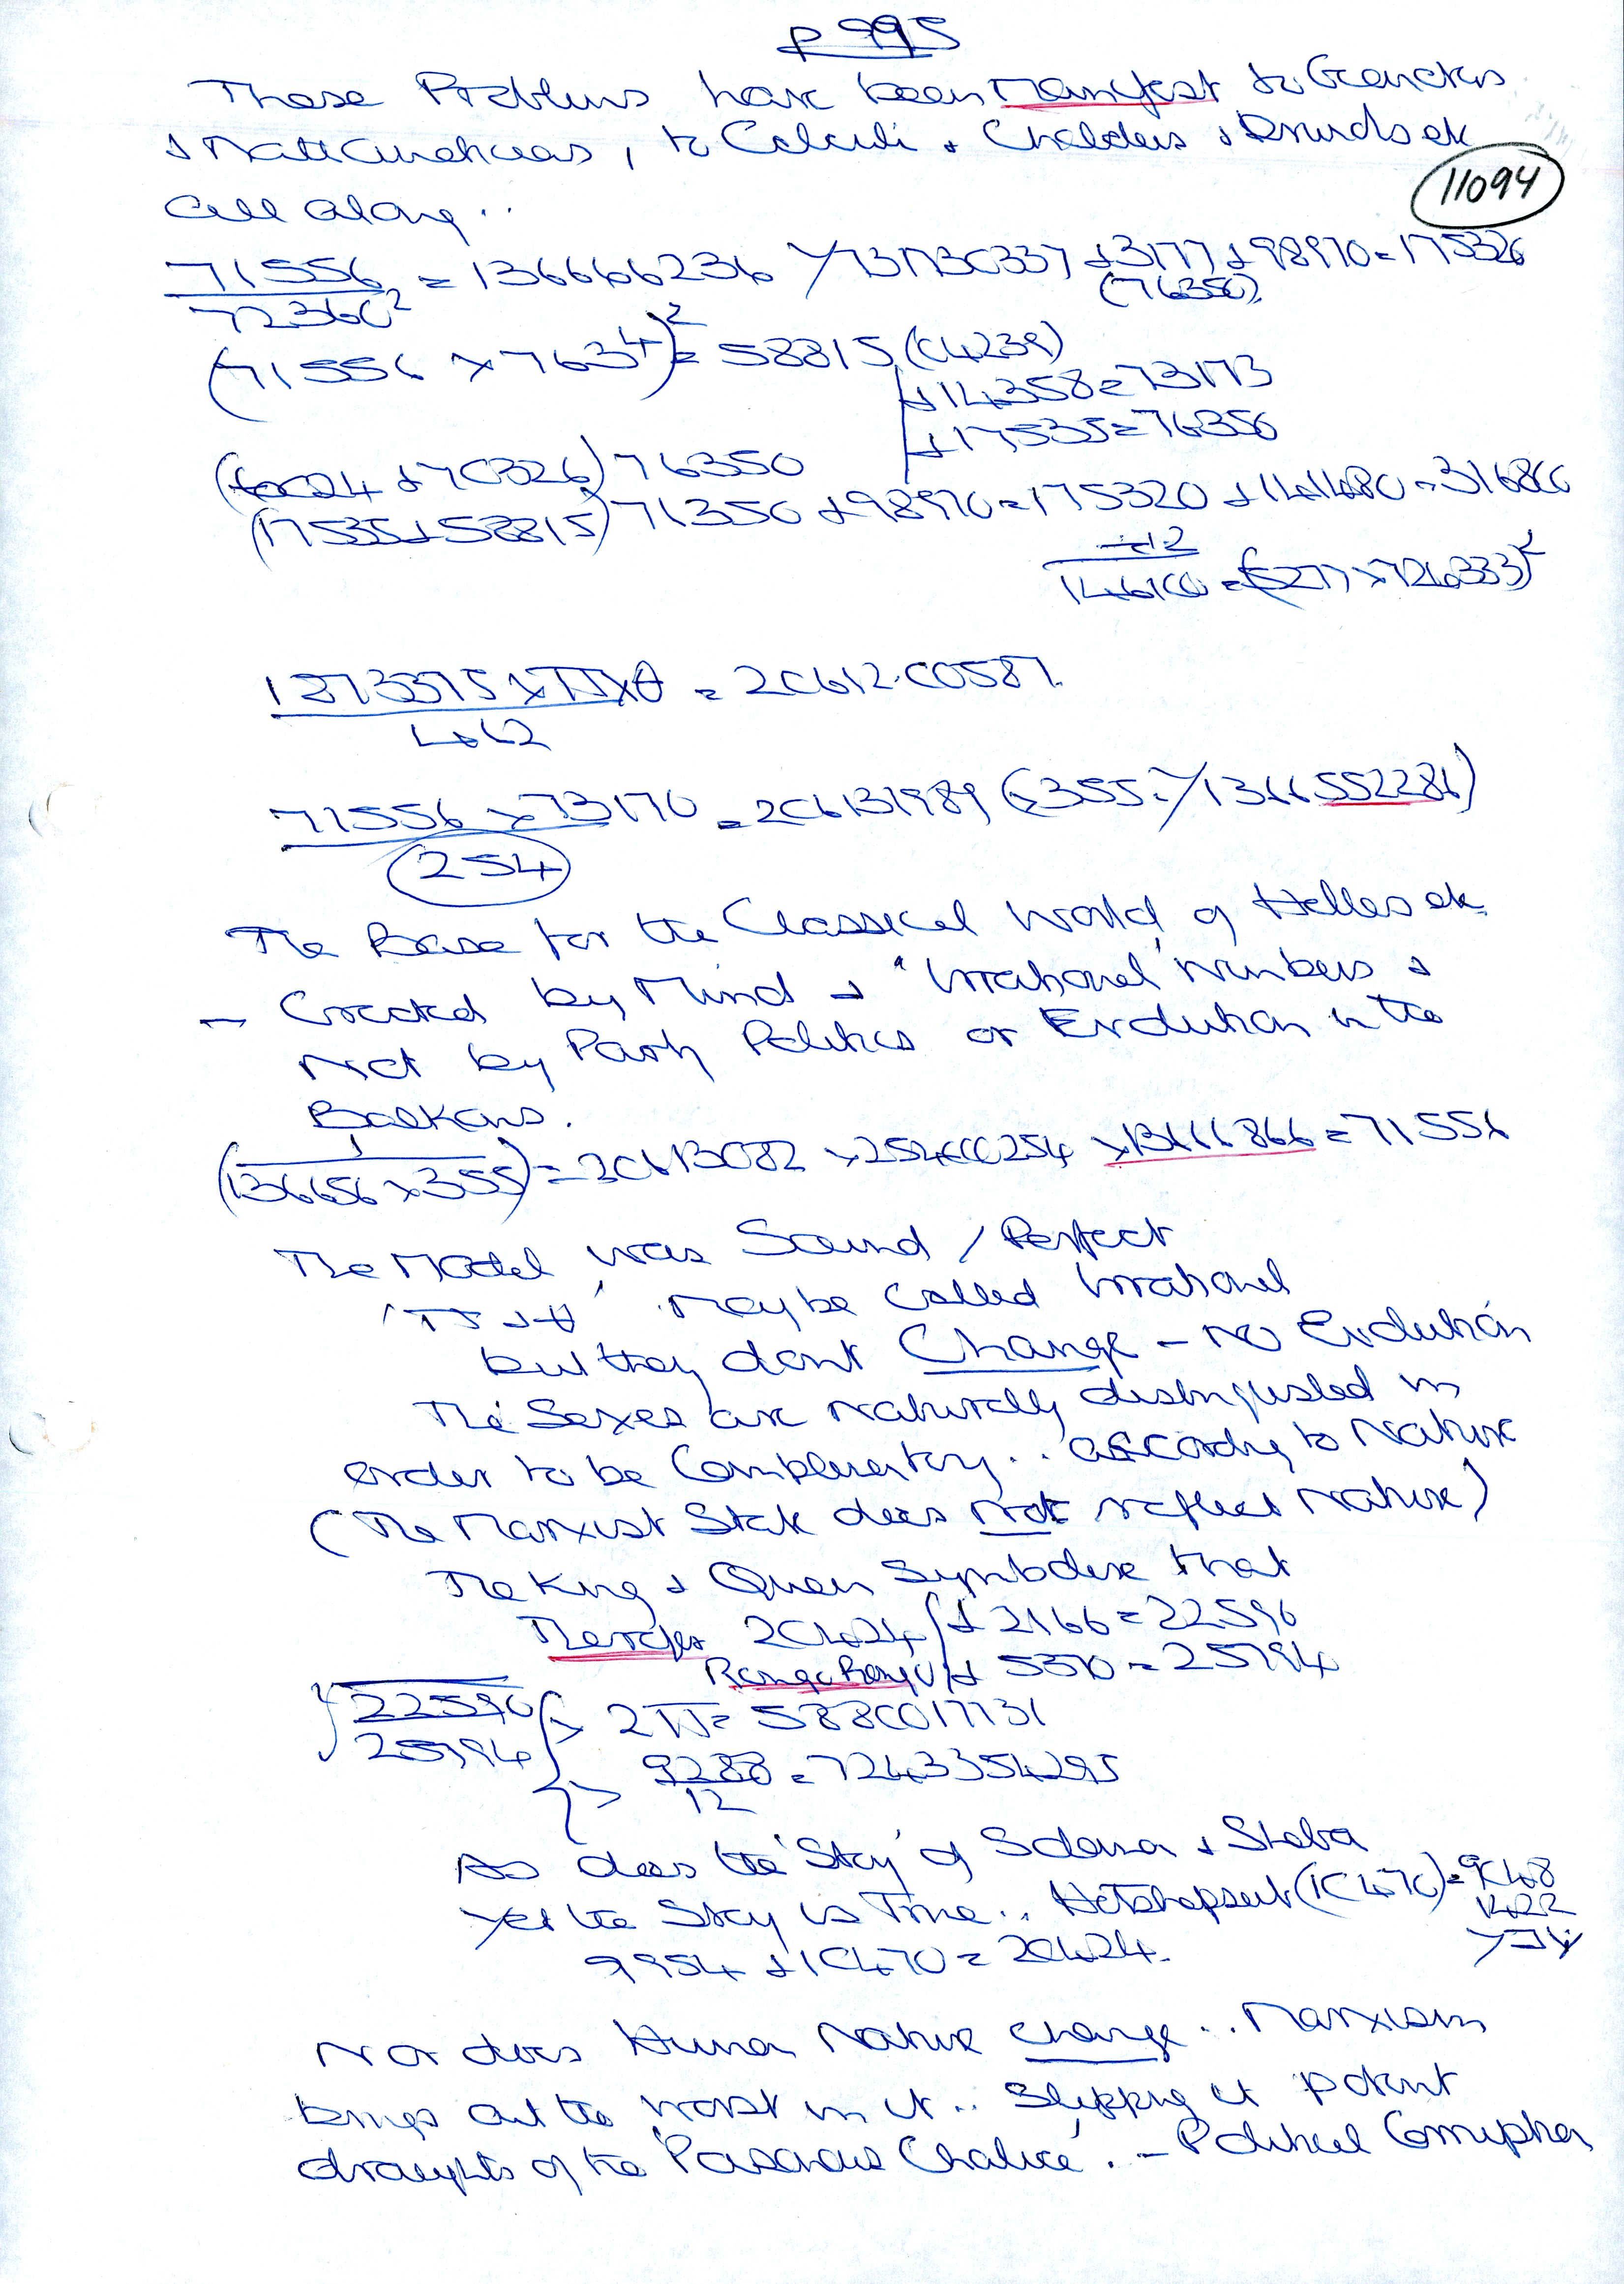 p 995
These Problems have been Manifest to Geneticists
& Mathematicians, to Calculi & Chaldeans & Druids etc
all along..
11094
71556 = 136666236 73173 +3177 +98970=175326
72360² (76350)
(71556 × 7634)² = 58815 (C4239)
+14358=73173
+17535=76350
+70326) 76350
(17535+58815) 71350 +98970=175320 + 141480=316800
÷12
1273375 × π × θ = 20612.00587
71556 × 73170 = 206131989 (355 1366552286)
254
The Base for the Classical World of Hellas etc
– Created by Mind & "Irrational" Numbers &
Not by Party Politics or Evolution in the
Balkans.
(1
136656×355) = 20613082 × 254000254 × 13666866 = 71556
The Model was Sound / Perfect
'π & θ' may be called Irrational
but they dont Change – No Evolution
The Sexes are naturally distinguished in
order to be Complementary.. according to Nature
(The Marxist State does not reflect Nature)
The King & Queen Symbolise that
20424 + 2166 = 22590
+ 5370 = 25794
√22590 2π = 5880017131
25794 9288 = 7243354295
12
As does the 'Story' of Solomon & Sheba
Yet the Story is True.. Hatshepsut (10470) = 9048
1422
9954 + 10470 = 20424.
Nor does Human Nature change.. Marxism
brings out the worst in it.. Slipping it potent
draughts of the 'Poisonous Chalice'. – Political Corruption